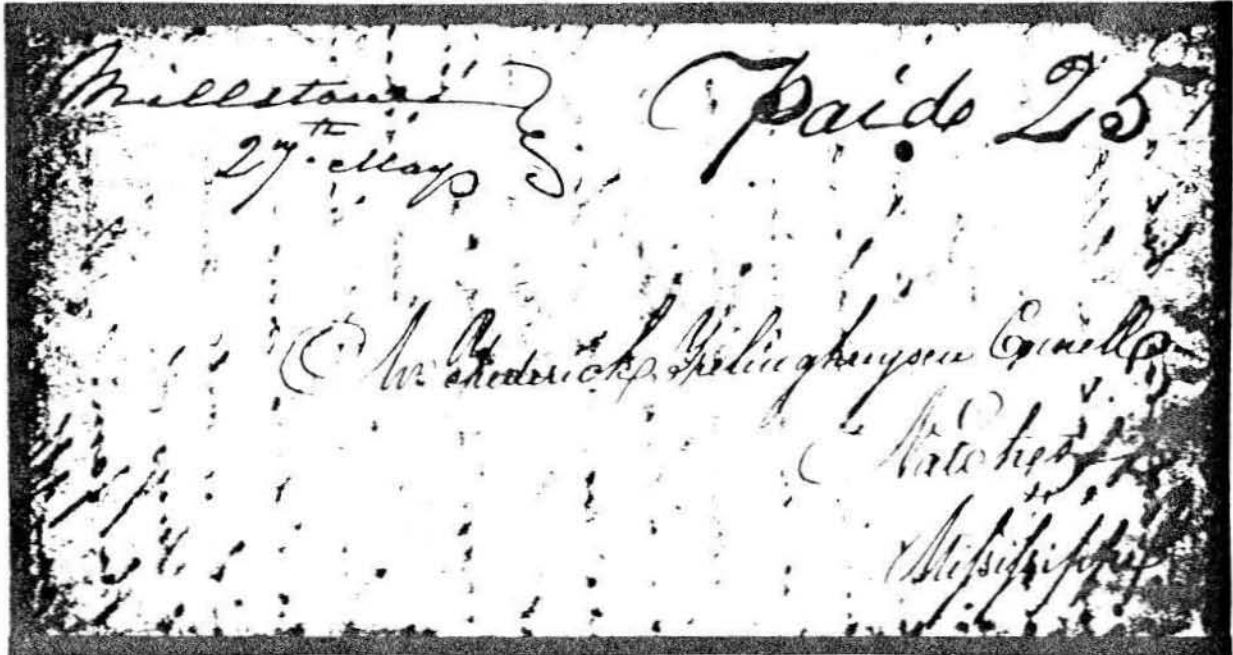 Millstone
27th May
Paid 25
Mr Frederick Frelinghuysen
Natchez
Mississippi